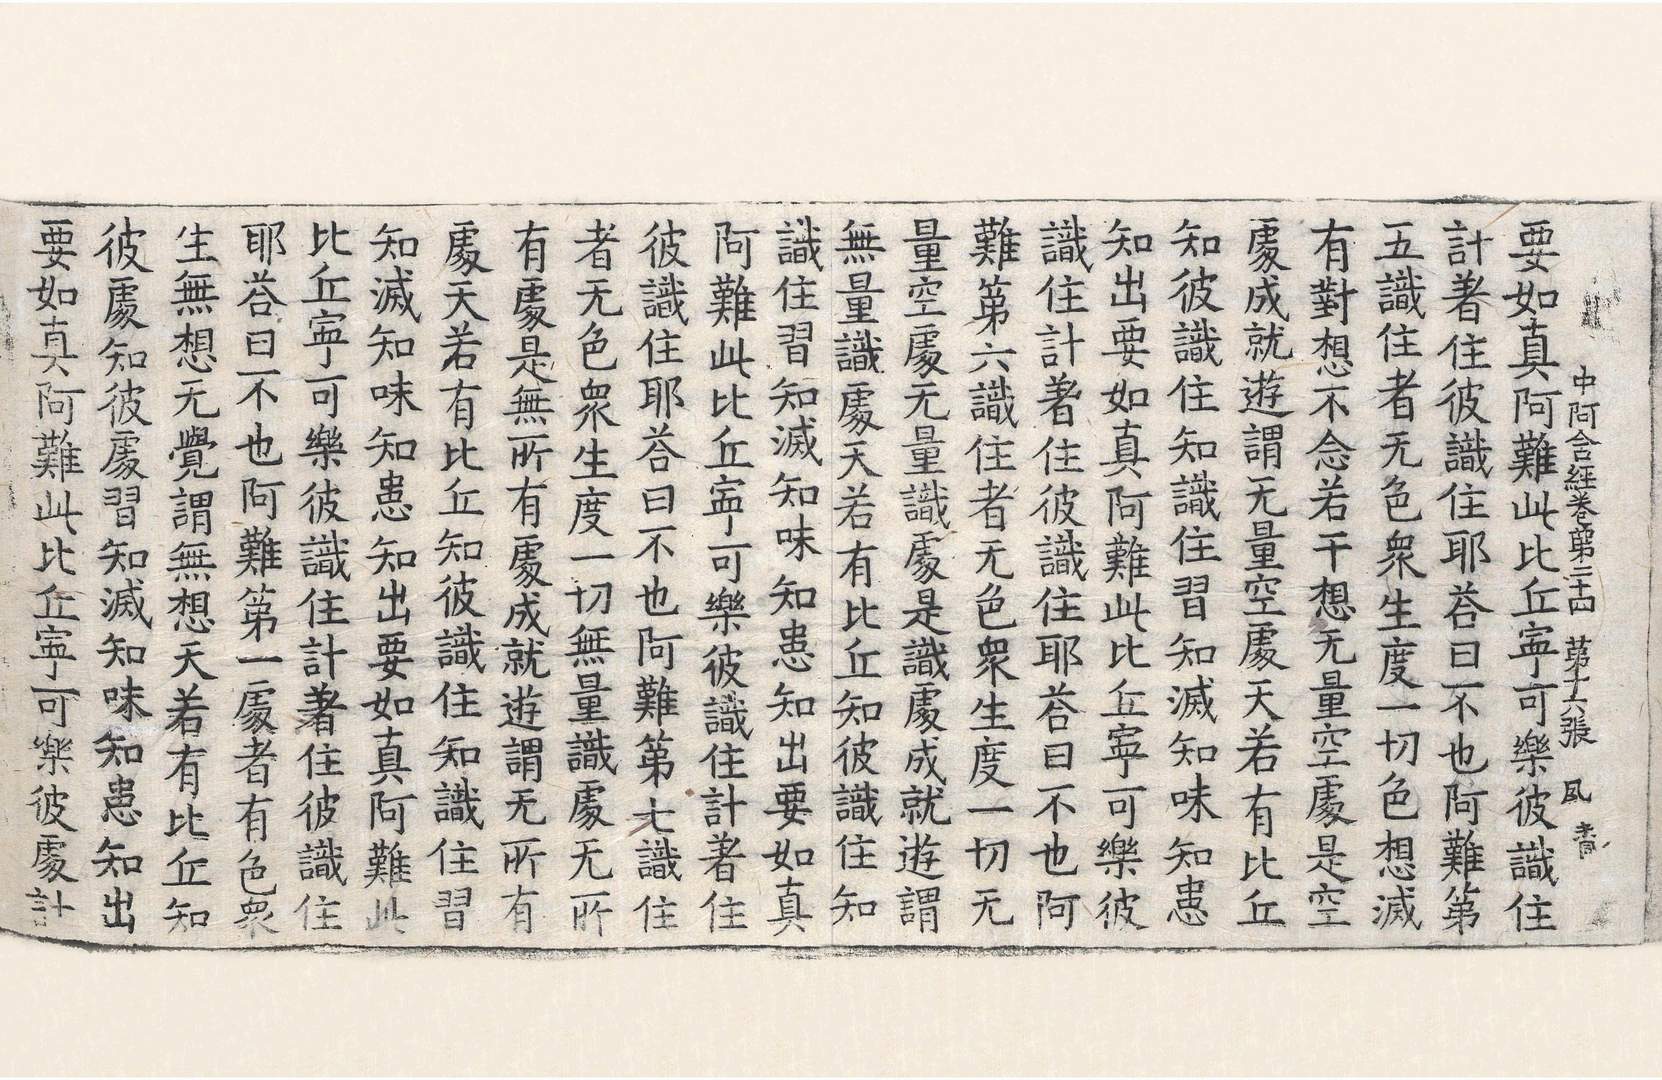 中阿含經卷第二十四 第十六張 風
要如真阿難此比丘寧可樂彼識住
計著住彼識住耶荅曰不也阿難第
五識住者无色衆生度一切色想滅
有對想不念若干想无量空處是空
處成就遊謂无量空處天若有比丘
知彼識住知識住習知滅知味知患
知出要如真阿難此比丘寧可樂彼
識住計著住彼識住耶荅曰不也阿
難第六識住者无色衆生度一切无
量空處无量識處是識處成就遊謂
無量識處天若有比丘知彼識住知
識住習知滅知味知患知出要如真
阿難此比丘寧可樂彼識住計著住
彼識住耶荅曰不也阿難第七識住
者无色衆生度一切無量識處无所
有處是無所有處成就遊謂无所有
處天若有比丘知彼識住知識住習
知滅知味知患知出要如真阿難此
比丘寧可樂彼識住計著住彼識住
耶荅曰不也阿難第一處者有色衆
生無想无覺謂無想天若有比丘知
彼處知彼處習知滅知味知患知出
要如真阿難此比丘寧可樂彼處計